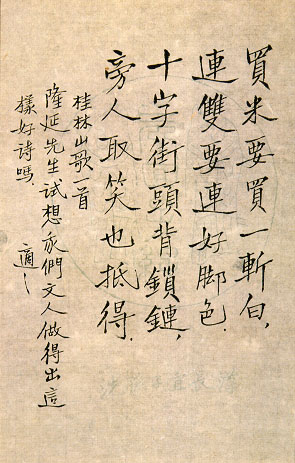 買米要買一斬白,
連雙要連好脚色.
十字街頭背鎖鏈,
旁人取笑也抵得.
桂林山歌一首
隆延先生試想我們文人做得出這
樣好詩嗎.
適